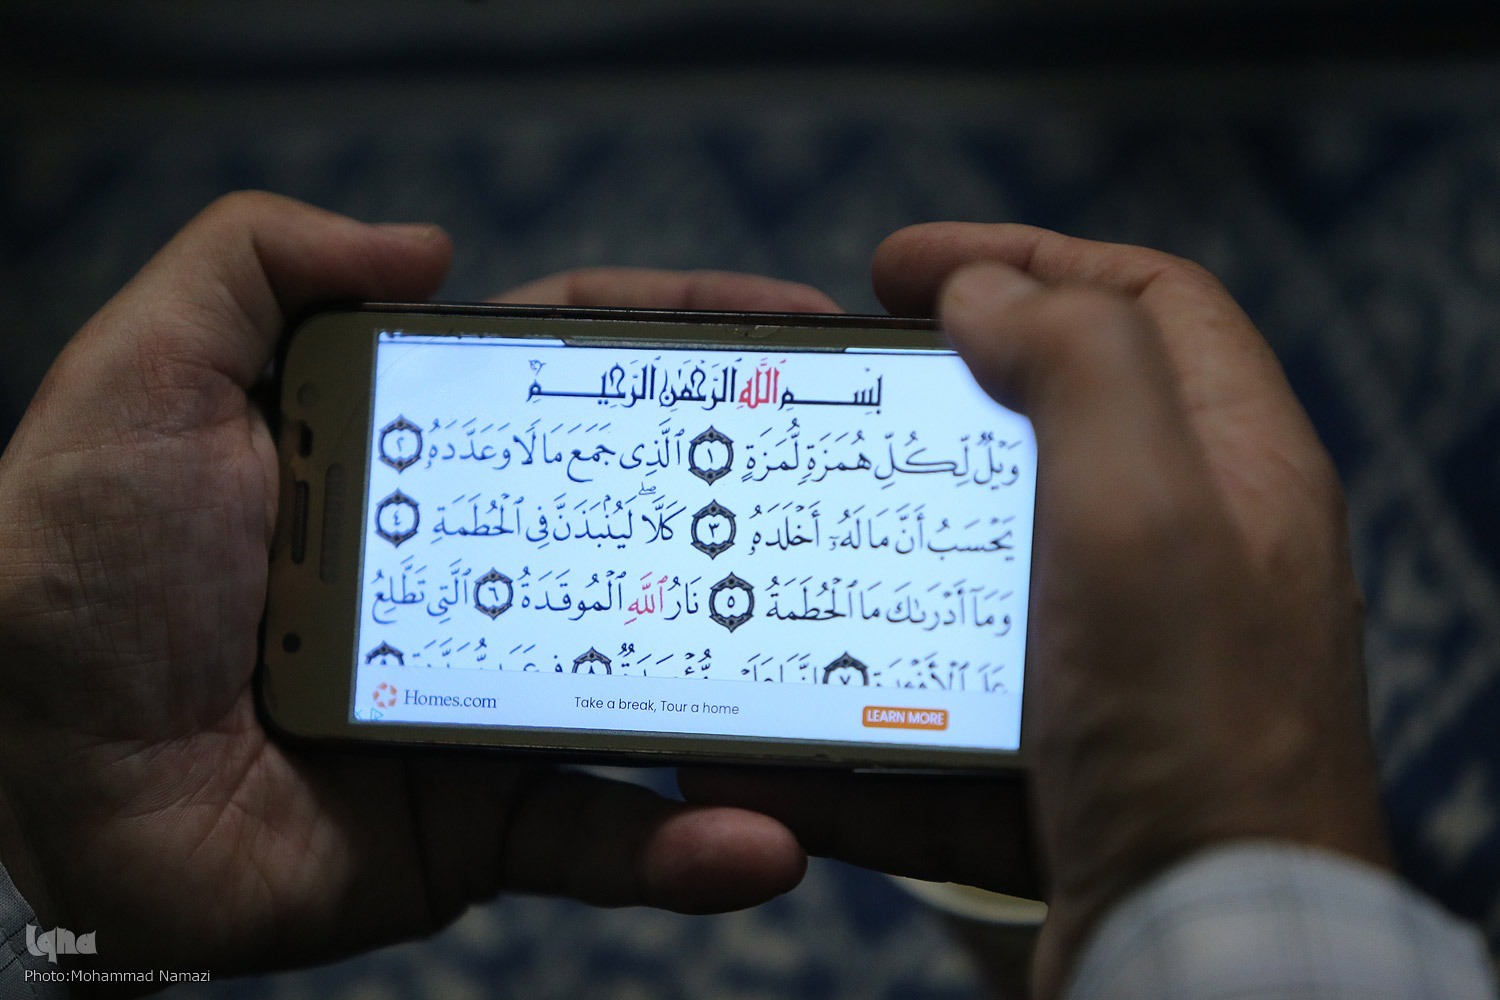 بِسْمِ ٱللَّهِ ٱلرَّحْمَٰنِ ٱلرَّحِيمِ
وَيْلٌ لِّكُلِّ هُمَزَةٍ لُّمَزَةٍ ١ ٱلَّذِى جَمَعَ مَالًا وَعَدَّدَهُۥ ٢
يَحْسَبُ أَنَّ مَالَهُۥٓ أَخْلَدَهُۥ ٣ كَلَّا ۖ لَيُنۢبَذَنَّ فِى ٱلْحُطَمَةِ ٤
وَمَآ أَدْرَىٰكَ مَا ٱلْحُطَمَةُ ٥ نَارُ ٱللَّهِ ٱلْمُوقَدَةُ ٦ ٱلَّتِى تَطَّلِعُ
عَلَى ٱلْأَفْـِٔدَةِ ٧
Homes.com Take a break, Tour a home LEARN MORE
Iqna
Photo:Mohammad Namazi